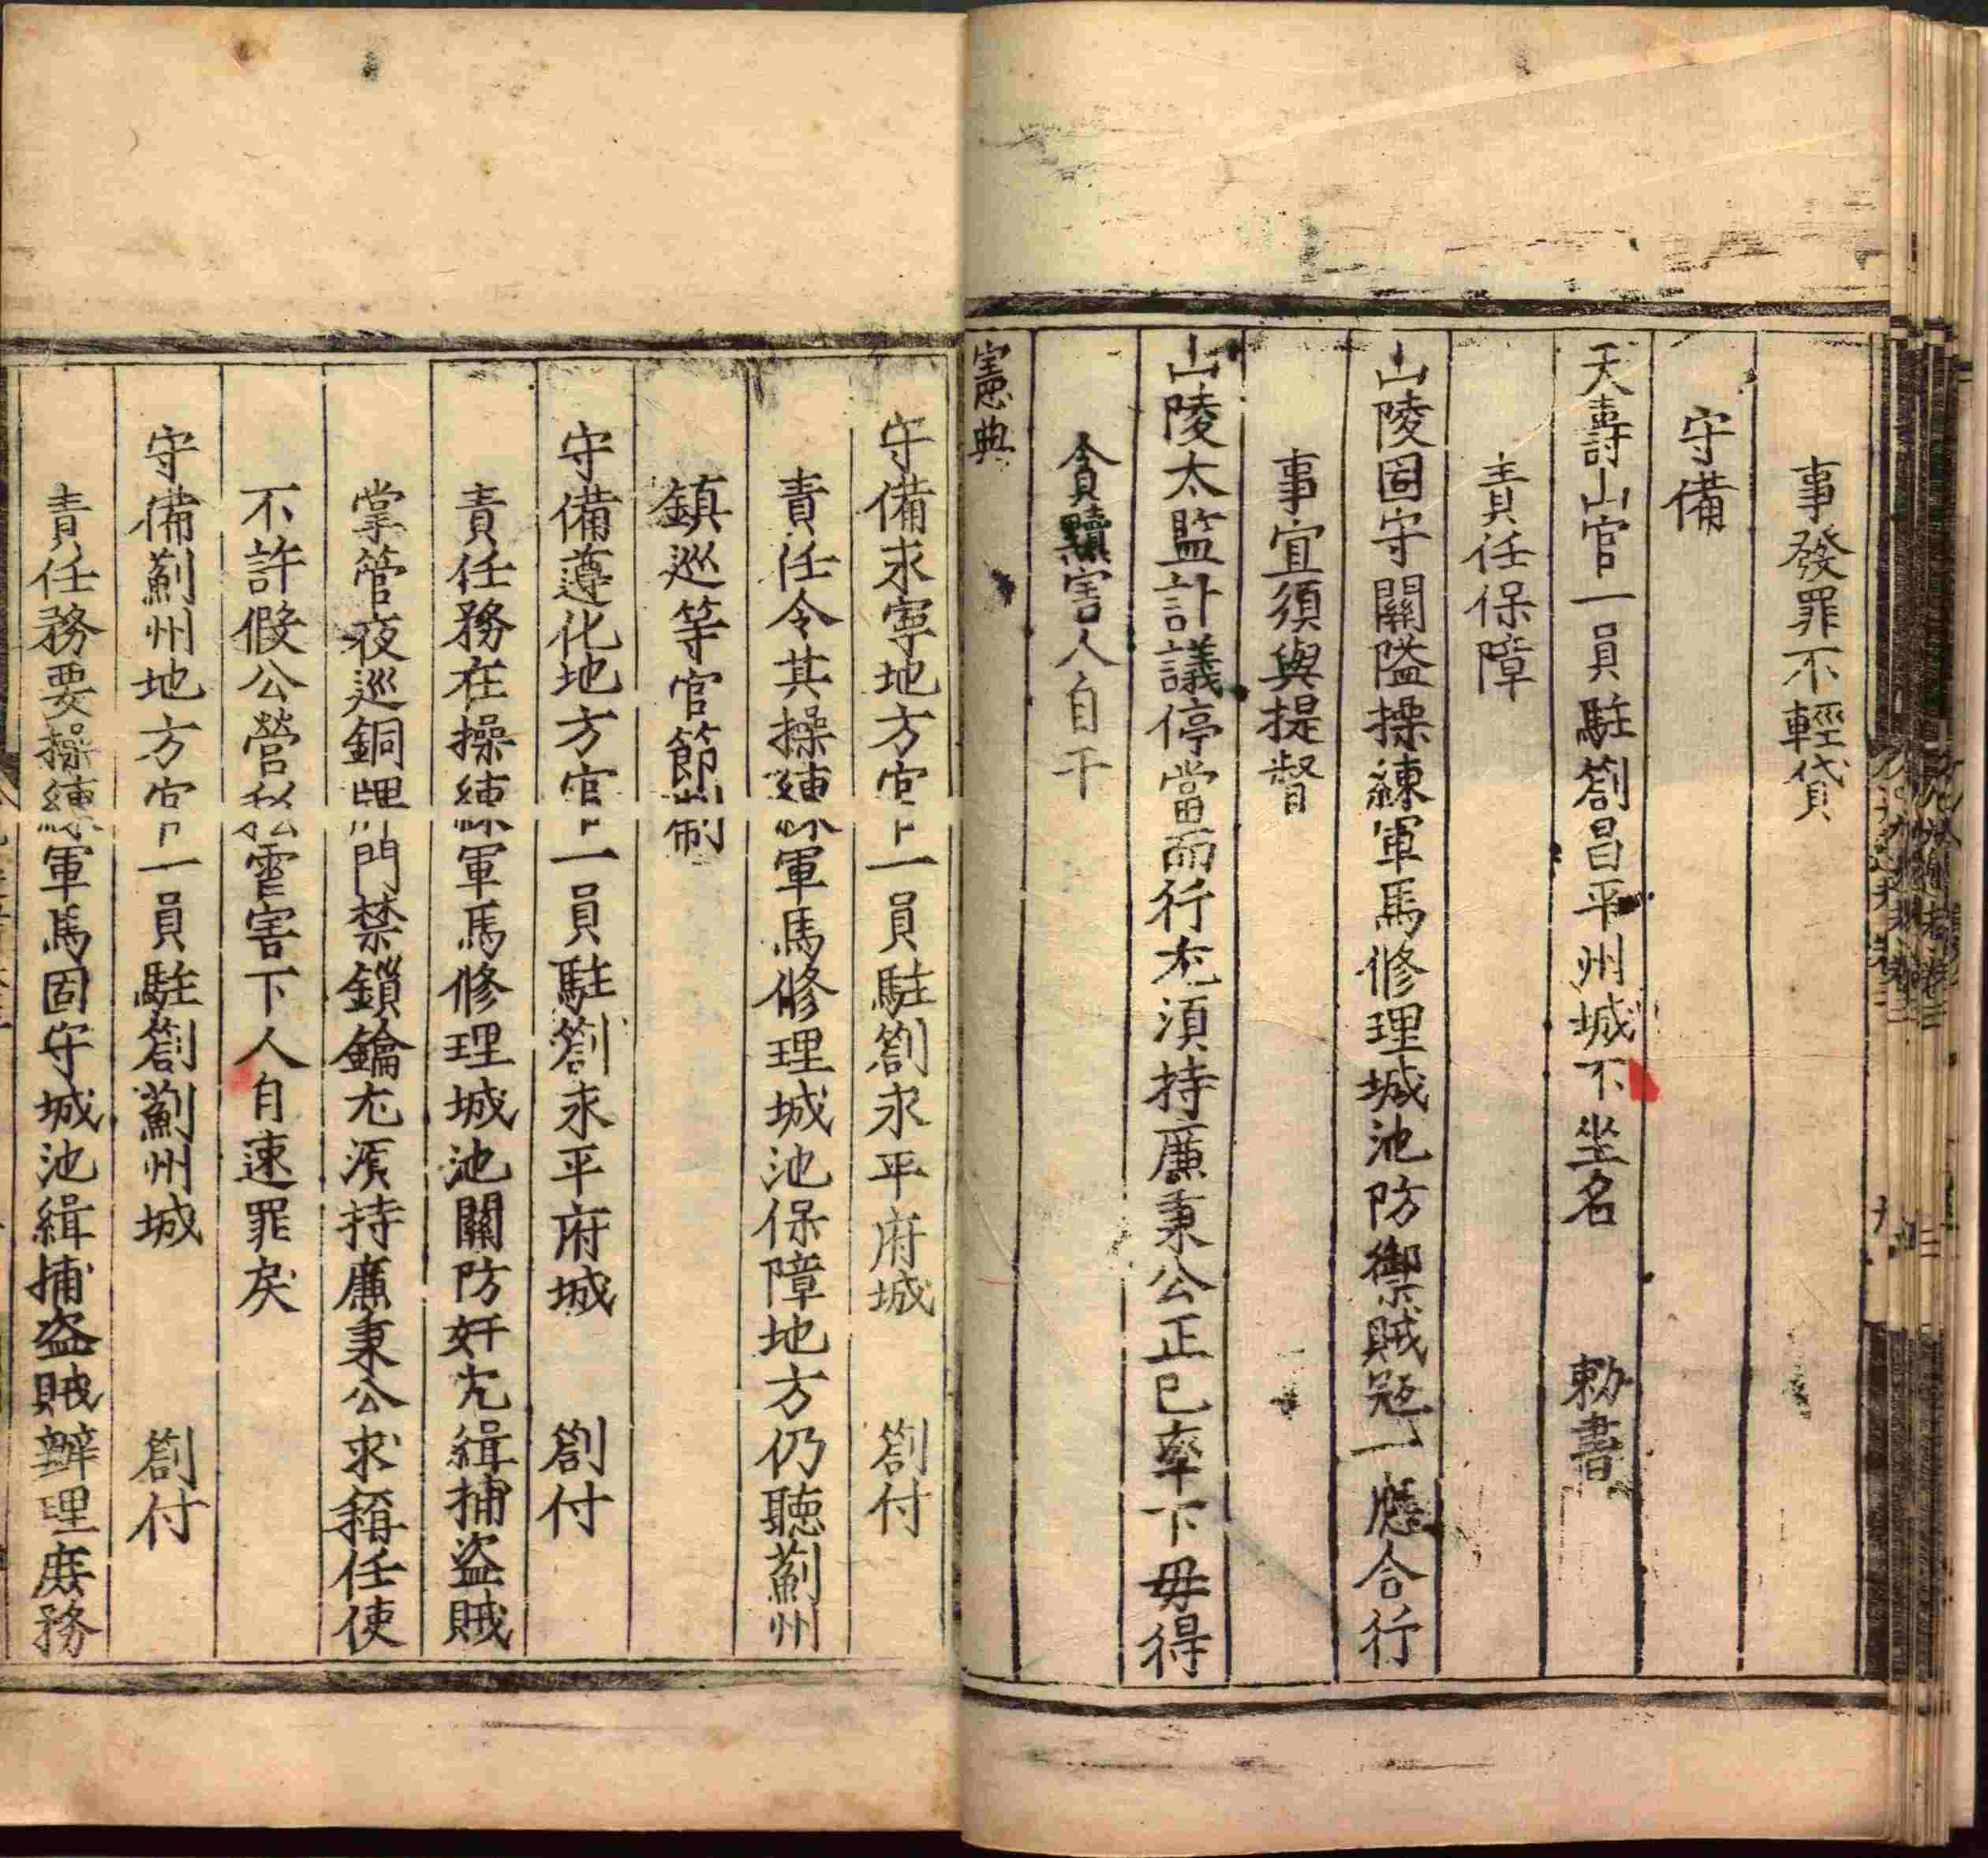 事發罪不輕貸
守備
天壽山官一員駐劄昌平州城下坐名　勅書
責任保障
山陵固守關隘操練軍馬修理城池防禦賊冦一應合行
事宜須與提督
山陵太監計議停當而行尤須持廉秉公正已率下毋得
貪黷害人自干
憲典
守備永寧地方官一員駐劄永平府城　劄付
責任令其操練軍馬修理城池保障地方仍聽薊州
鎮巡等官節制
守備遵化地方官一員駐劄永平府城　劄付
責任務在操練軍馬修理城池關防奸宄緝捕盗賊
掌管夜巡銅牌門禁鎖鑰尤湏持廉秉公求稱任使
不許假公營私害下人自速罪戾
守備薊州地方官一員駐劄薊州城　劄付
責任務要操練軍馬固守城池緝捕盗賊辦理庶務